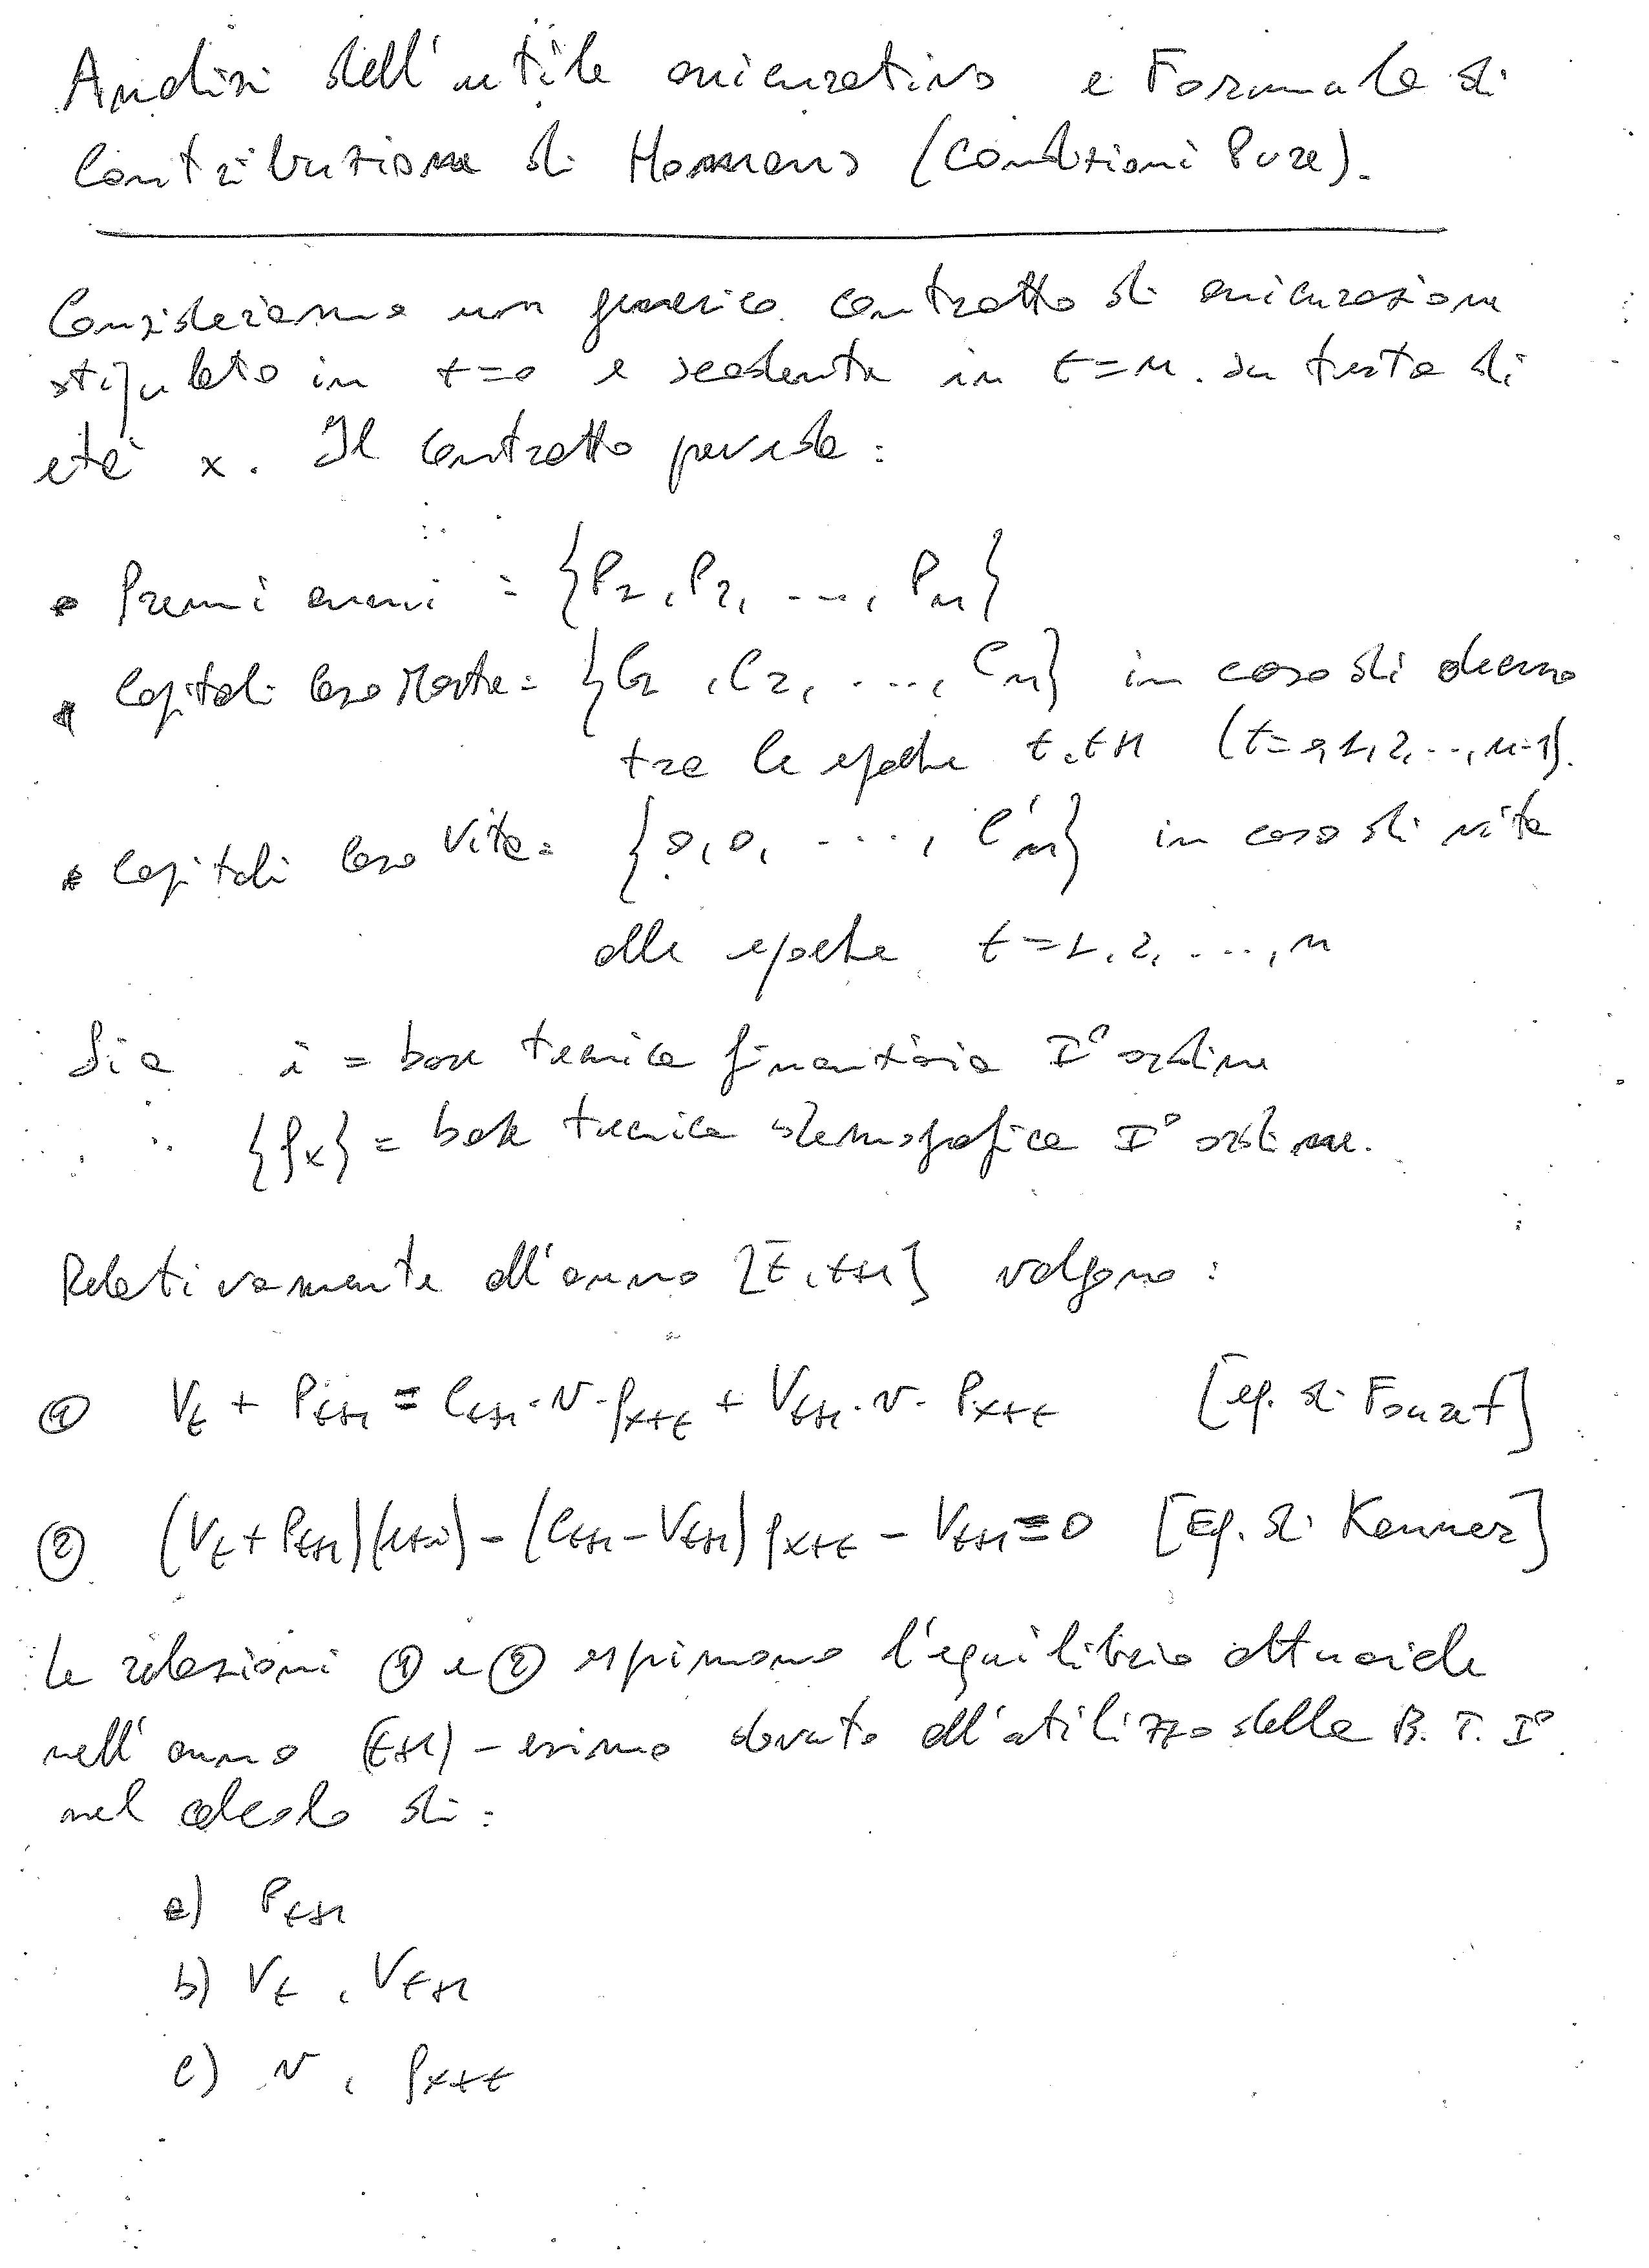 Analisi dell'utile assicurativo e Formula di
Contribuzione di Homans (Condizioni Pure).
Consideriamo un generico contratto di assicurazione
stipulato in t=0 e scadente in t=n su testa di
età x. Il contratto prevede:
• Premi annui = {P₁, P₂, ..., Pₙ}
• Capitali Caso Morte = {C₁, C₂, ..., Cₙ} in caso di decesso
tra le epoche t, t+1 (t=0,1,2,...,n-1).
• Capitali Caso Vita = {0, 0, ..., C'ₙ} in caso di vita
alle epoche t=1, 2, ..., n
Sia i = base tecnica finanziaria I° ordine
{qₓ} = base tecnica demografica I° ordine.
Relativamente all'anno [t, t+1] valgono:
① Vₜ + Pₜ₊₁ = Cₜ₊₁·v·qₓ₊ₜ + Vₜ₊₁·v·pₓ₊ₜ [eq. di Fouret]
② (Vₜ + Pₜ₊₁)(1+i) - (Cₜ₊₁ - Vₜ₊₁) qₓ₊ₜ - Vₜ₊₁ = 0 [Eq. di Kanner]
Le relazioni ① e ② esprimono l'equilibrio attuariale
nell'anno (t+1)-esimo dovuto all'utilizzo delle B.T. I°
nel calcolo di:
a) Pₜ₊₁
b) Vₜ, Vₜ₊₁
c) v, qₓ₊ₜ